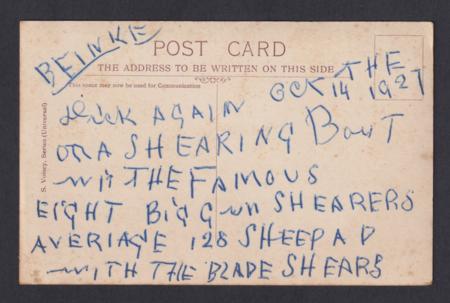 BEINKE
POST CARD
THE ADDRESS TO BE WRITTEN ON THIS SIDE
This space may now be used for Communication
OCK THE
14 1927
DICK AGAIN
ON A SHEARING BOUT
WITTHE FAMOUS
EIGHT BIG gun SHEARERS
AVERIAGE 128 SHEEP A D
WITH THE BLADE SHEARS
S. Voisey, Series (Universal)